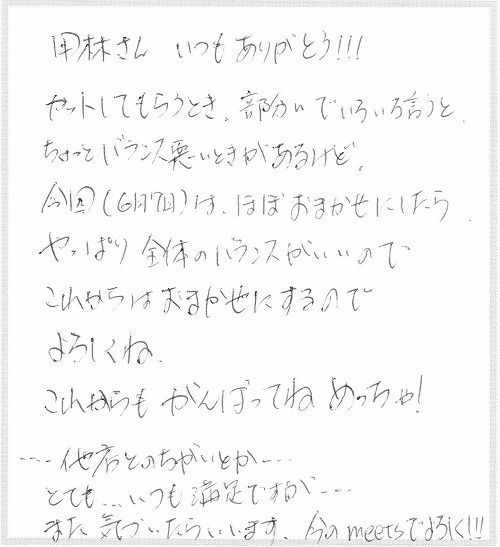 田林さん いつもありがとう!!!
カットしてもらうとき、部分いでいろいろ言うと、
ちょっとバランス悪いときがあるけど、
今回(6月7日)は、ほぼおまかせにしたら、
やっぱり全体のバランスがいいので
これからはおまかせにするので
よろしくね、
これからもがんばってね めっちゃ!
....他店とのちがいとか....
とても...いつも満足ですが...
また気づいたらいいます、今のmeetsでよろしく!!!